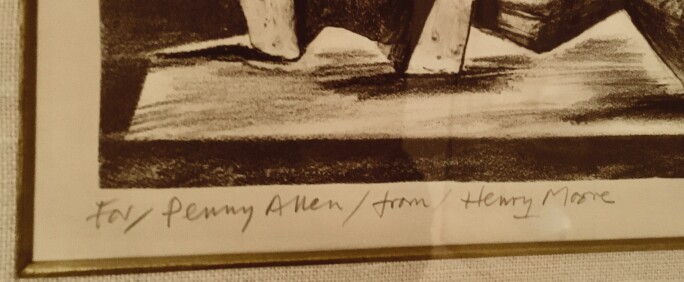 For/ Penny Allen / from / Henry Moore